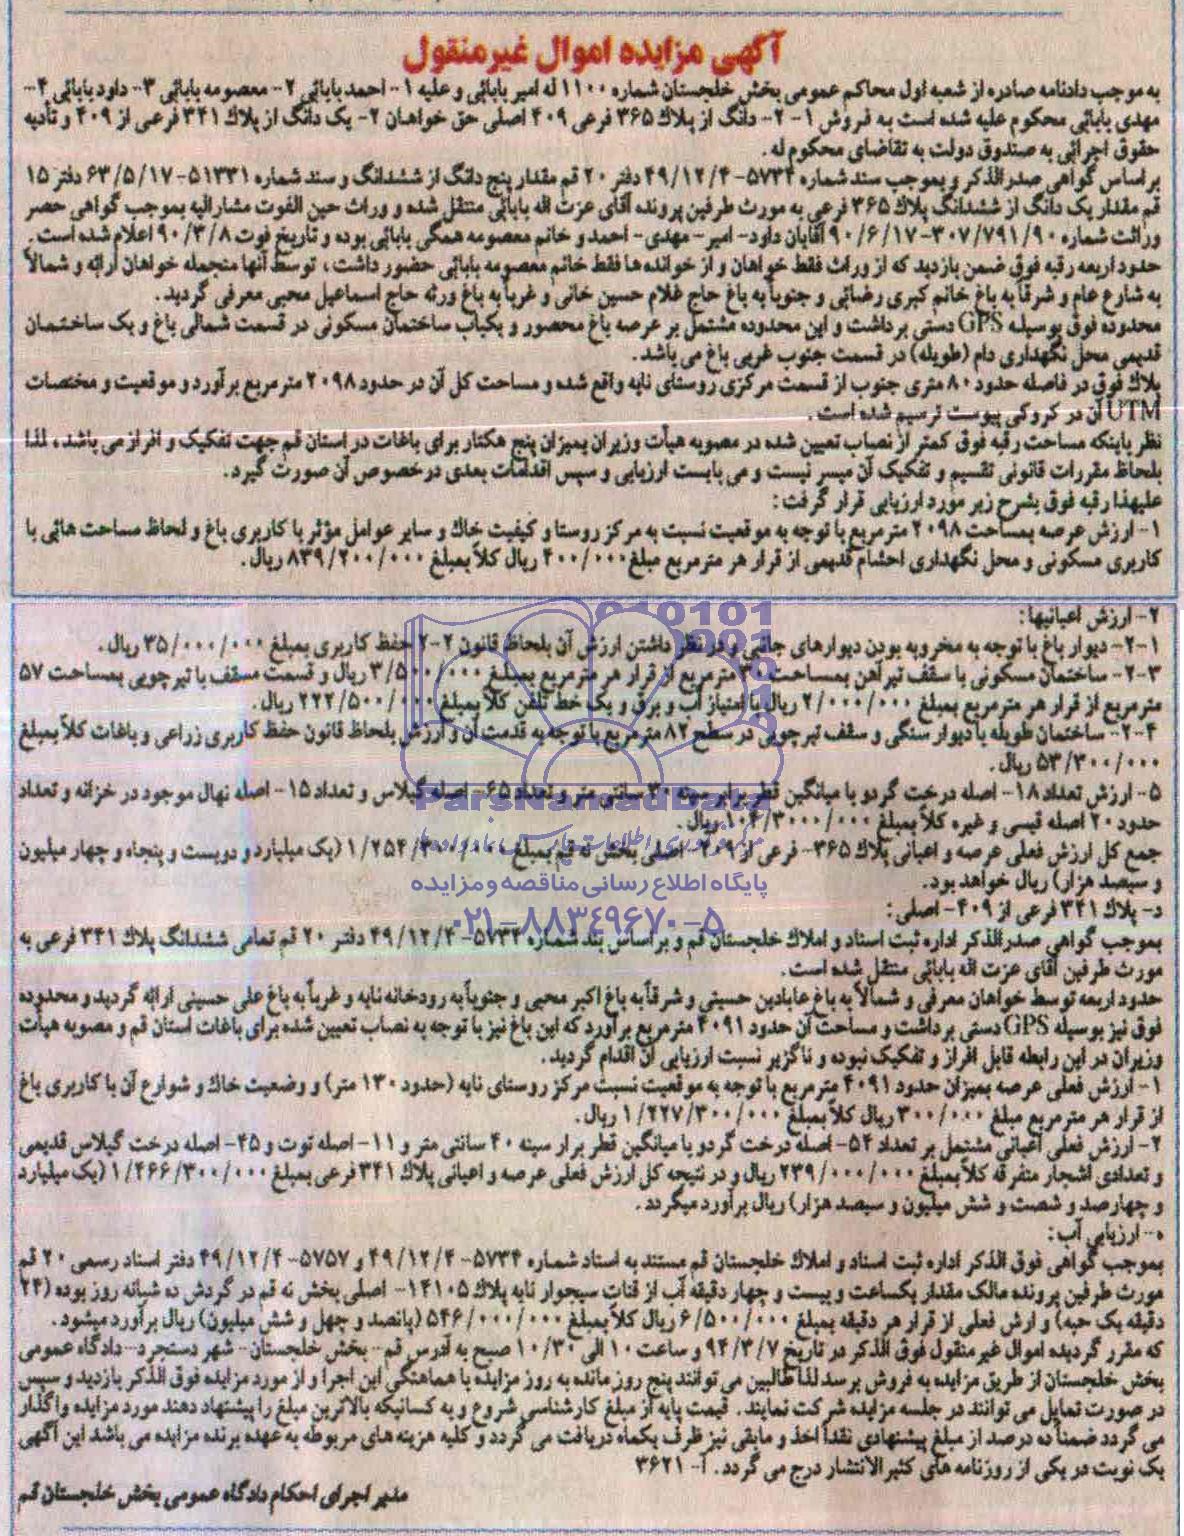 آگهی مزایده اموال غیرمنقول
به موجب دادنامه صادره از شعبه اول محاکم عمومی بخش خلجستان شماره ۱۱۰۰ له امیر بابائی و علیه ۱- احمد بابائی ۲- معصومه بابائی ۳- داود بابائی ۴-
مهدی بابائی محکوم علیه شده است به فروش ۱-۲- دانگ از پلاک ۳۶۵ فرعی ۴۰۹ اصلی حق خواهان ۲- یک دانگ از پلاک ۳۴۱ فرعی از ۴۰۹ و تأدیه
حقوق اجرائی به صندوق دولت به تقاضای محکوم له.
بر اساس گواهی صدرالذکر و بموجب سند شماره ۵۷۳۴-۴۹/۱۲/۴ دفتر ۲۰ قم مقدار پنج دانگ از ششدانگ و سند شماره ۵۱۳۳۱-۶۳/۵/۱۷ دفتر ۱۵
قم مقدار یک دانگ از ششدانگ پلاک ۳۶۵ فرعی به مورث طرفین پرونده آقای عزت اله بابائی منتقل شده و وراث حین الفوت مشارالیه بموجب گواهی حصر
وراثت شماره ۳۰۷/۷۹۱/۹۰-۹۰/۶/۱۷ آقایان داود- امیر- مهدی- احمد و خانم معصومه همگی بابائی بوده و تاریخ فوت ۹۰/۳/۸ اعلام شده است.
حدود اربعه رقبه فوق ضمن بازدید که از وراث فقط خواهان و از خوانده ها فقط خانم معصومه بابائی حضور داشت، توسط آنها منجمله خواهان ارائه و شمالاً
به شارع عام و شرقاً به باغ خانم کبری رضائی و جنوباً به باغ حاج غلام حسین خانی و غرباً به باغ ورثه حاج اسماعیل محبی معرفی گردید.
محدوده فوق بوسیله GPS دستی برداشت و این محدوده مشتمل بر عرصه باغ محصور و یکباب ساختمان مسکونی در قسمت شمالی باغ و یک ساختمان
قدیمی محل نگهداری دام (طویله) در قسمت جنوب غربی باغ می باشد.
پلاک فوق در فاصله حدود ۸۰ متری جنوب از قسمت مرکزی روستای نایه واقع شده و مساحت کل آن در حدود ۲۰۹۸ مترمربع برآورد و موقعیت و مختصات
UTM آن در کروکی پیوست ترسیم شده است.
نظر باینکه مساحت رقبه فوق کمتر از نصاب تعیین شده در مصوبه هیأت وزیران بمیزان پنج هکتار برای باغات در استان قم جهت تفکیک و افراز می باشد، لذا
بلحاظ مقررات قانونی تقسیم و تفکیک آن میسر نیست و می بایست ارزیابی و سپس اقدامات بعدی در خصوص آن صورت گیرد.
علیهذا رقبه فوق بشرح زیر مورد ارزیابی قرار گرفت:
۱- ارزش عرصه بمساحت ۲۰۹۸ مترمربع با توجه به موقعیت نسبت به مرکز روستا و کیفیت خاک و سایر عوامل مؤثر با کاربری باغ و لحاظ مساحت هائی با
کاربری مسکونی و محل نگهداری احشام قدیمی از قرار هر مترمربع مبلغ ۴۰۰/۰۰۰ ریال کلاً بمبلغ ۸۳۹/۲۰۰/۰۰۰ ریال.
۲- ارزش اعیانیها:
۲-۱- دیوار باغ با توجه به مخروبه بودن دیوارهای جانبی و در نظر داشتن ارزش آن بلحاظ قانون ۲-۲ حفظ کاربری بمبلغ ۳۵/۰۰۰/۰۰۰ ریال.
۲-۳- ساختمان مسکونی با سقف تیرآهن بمساحت ۳۰ مترمربع از قرار هر مترمربع بمبلغ ۳/۵۰۰/۰۰۰ ریال و قسمت مسقف با تیرچوبی بمساحت ۵۷
مترمربع از قرار هر مترمربع بمبلغ ۲/۰۰۰/۰۰۰ ریال با امتیاز آب و برق و یک خط تلفن کلاً بمبلغ ۲۲۲/۵۰۰/۰۰۰ ریال.
۲-۴- ساختمان طویله با دیوار سنگی و سقف تیرچوبی در سطح ۸۲ مترمربع با توجه به قدمت آن و ارزش بلحاظ قانون حفظ کاربری زراعی و باغات کلاً بمبلغ
۵۳/۳۰۰/۰۰۰ ریال.
۵- ارزش تعداد ۱۸- اصله درخت گردو با میانگین قطر برابر سینه ۳۰ سانتی متر و تعداد ۶۵- اصله گیلاس و تعداد ۱۵- اصله نهال موجود در خزانه و تعداد
حدود ۲۰ اصله قیسی و غیره کلاً بمبلغ ۱۰۴/۳۰۰۰/۰۰۰ ریال.
جمع کل ارزش فعلی عرصه و اعیانی پلاک ۳۶۵- فرعی از ۴۰۹- اصلی بخش نه قم بمبلغ ۱/۲۵۴/۳۰۰/۰۰۰ (یک میلیارد و دویست و پنجاه و چهار میلیون
و سیصد هزار) ریال خواهد بود.
د- پلاک ۳۴۱ فرعی از ۴۰۹- اصلی:
بموجب گواهی صدرالذکر اداره ثبت اسناد و املاک خلجستان قم و بر اساس بند شماره ۵۷۳۴-۴۹/۱۲/۴ دفتر ۲۰ قم تمامی ششدانگ پلاک ۳۴۱ فرعی به
مورث طرفین آقای عزت اله بابائی منتقل شده است.
حدود اربعه توسط خواهان معرفی و شمالاً به باغ عابادین حسینی و شرقاً به باغ اکبر محبی و جنوباً به رودخانه نایه و غرباً به باغ علی حسینی ارائه گردید و محدوده
فوق نیز بوسیله GPS دستی برداشت و مساحت آن حدود ۴۰۹۱ مترمربع برآورد که این باغ نیز با توجه به نصاب تعیین شده برای باغات استان قم و مصوبه هیأت
وزیران در این رابطه قابل افراز و تفکیک نبوده و ناگزیر نسبت ارزیابی آن اقدام گردید.
۱- ارزش فعلی عرصه بمیزان حدود ۴۰۹۱ مترمربع با توجه به موقعیت نسبت مرکز روستای نایه (حدود ۱۳۰ متر) و وضعیت خاک و شوارع آن با کاربری باغ
از قرار هر مترمربع مبلغ ۳۰۰/۰۰۰ ریال کلاً بمبلغ ۱/۲۲۷/۳۰۰/۰۰۰ ریال.
۲- ارزش فعلی اعیانی مشتمل بر تعداد ۵۴- اصله درخت گردو با میانگین قطر برابر سینه ۴۰ سانتی متر و ۱۱- اصله توت و ۴۵- اصله درخت گیلاس قدیمی
و تعدادی اشجار متفرقه کلاً بمبلغ ۲۳۹/۰۰۰/۰۰۰ ریال و در نتیجه کل ارزش فعلی عرصه و اعیانی پلاک ۳۴۱ فرعی بمبلغ ۱/۴۶۶/۳۰۰/۰۰۰ (یک میلیارد
و چهارصد و شصت و شش میلیون و سیصد هزار) ریال برآورد میگردد.
ه- ارزیابی آب:
بموجب گواهی فوق الذکر اداره ثبت اسناد و املاک خلجستان قم مستند به اسناد شماره ۵۷۳۴-۴۹/۱۲/۴ و ۵۷۵۷-۴۹/۱۲/۴ دفتر اسناد رسمی ۲۰ قم
مورث طرفین پرونده مالک مقدار یکساعت و بیست و چهار دقیقه آب از قنات سیجوار نایه پلاک ۱۴۱۰۵- اصلی بخش نه قم در گردش ده شبانه روز بوده (۲۴
دقیقه یک حبه) و ارش فعلی از قرار هر دقیقه بمبلغ ۶/۵۰۰/۰۰۰ ریال کلاً بمبلغ ۵۴۶/۰۰۰/۰۰۰ (پانصد و چهل و شش میلیون) ریال برآورد میشود.
که مقرر گردیده اموال غیرمنقول فوق الذکر در تاریخ ۹۴/۳/۷ و ساعت ۱۰ الی ۱۰/۳۰ صبح به آدرس قم- بخش خلجستان- شهر دستجرد- دادگاه عمومی
بخش خلجستان از طریق مزایده به فروش برسد لذا طالبین می توانند پنج روز مانده به روز مزایده با هماهنگی این اجرا و از مورد مزایده فوق الذکر بازدید و سپس
در صورت تمایل می توانند در جلسه مزایده شرکت نمایند. قیمت پایه از مبلغ کارشناسی شروع و به کسانیکه بالاترین مبلغ را پیشنهاد دهند مورد مزایده واگذار
می گردد ضمناً ده درصد از مبلغ پیشنهادی نقداً اخذ و مابقی نیز ظرف یکماه دریافت می گردد و کلیه هزینه های مربوطه به عهده برنده مزایده می باشد این آگهی
یک نوبت در یکی از روزنامه های کثیرالانتشار درج می گردد. آ- ۳۶۲۱
مدیر اجرای احکام دادگاه عمومی بخش خلجستان قم
ParsNamadData
پایگاه اطلاع رسانی مناقصه و مزایده
۰۲۱-۸۸۳۴۹۶۷۰-۵